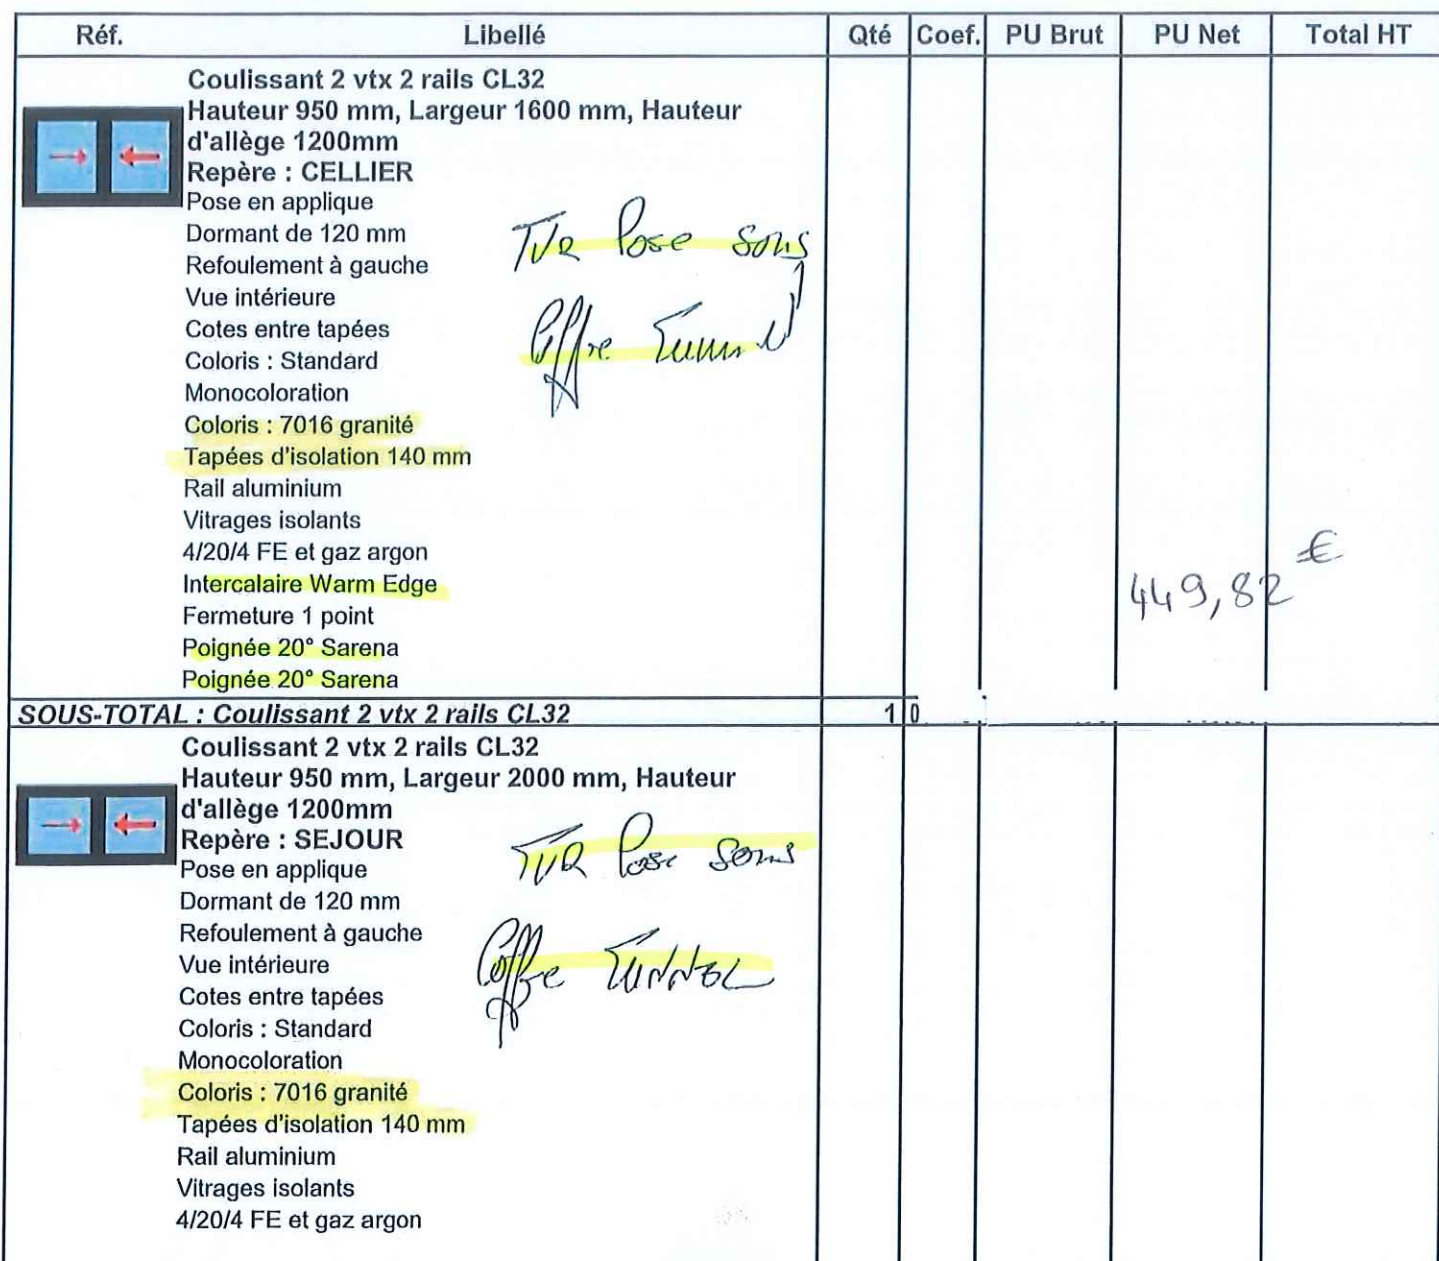 Réf. Libellé Qté Coef. PU Brut PU Net Total HT
Coulissant 2 vtx 2 rails CL32
Hauteur 950 mm, Largeur 1600 mm, Hauteur
d'allège 1200mm
Repère : CELLIER
Pose en applique
Dormant de 120 mm
TVR Pose sous
Refoulement à gauche
Vue intérieure
Cotes entre tapées
Coffre Tunnel
Coloris : Standard
Monocoloration
Coloris : 7016 granité
Tapées d'isolation 140 mm
Rail aluminium
Vitrages isolants
4/20/4 FE et gaz argon
Intercalaire Warm Edge
449,82 €
Fermeture 1 point
Poignée 20° Sarena
Poignée 20° Sarena
SOUS-TOTAL : Coulissant 2 vtx 2 rails CL32 1 0
Coulissant 2 vtx 2 rails CL32
Hauteur 950 mm, Largeur 2000 mm, Hauteur
d'allège 1200mm
Repère : SEJOUR
TVR Pose sous
Pose en applique
Dormant de 120 mm
Refoulement à gauche
Vue intérieure
Coffre TUNNEL
Cotes entre tapées
Coloris : Standard
Monocoloration
Coloris : 7016 granité
Tapées d'isolation 140 mm
Rail aluminium
Vitrages isolants
4/20/4 FE et gaz argon